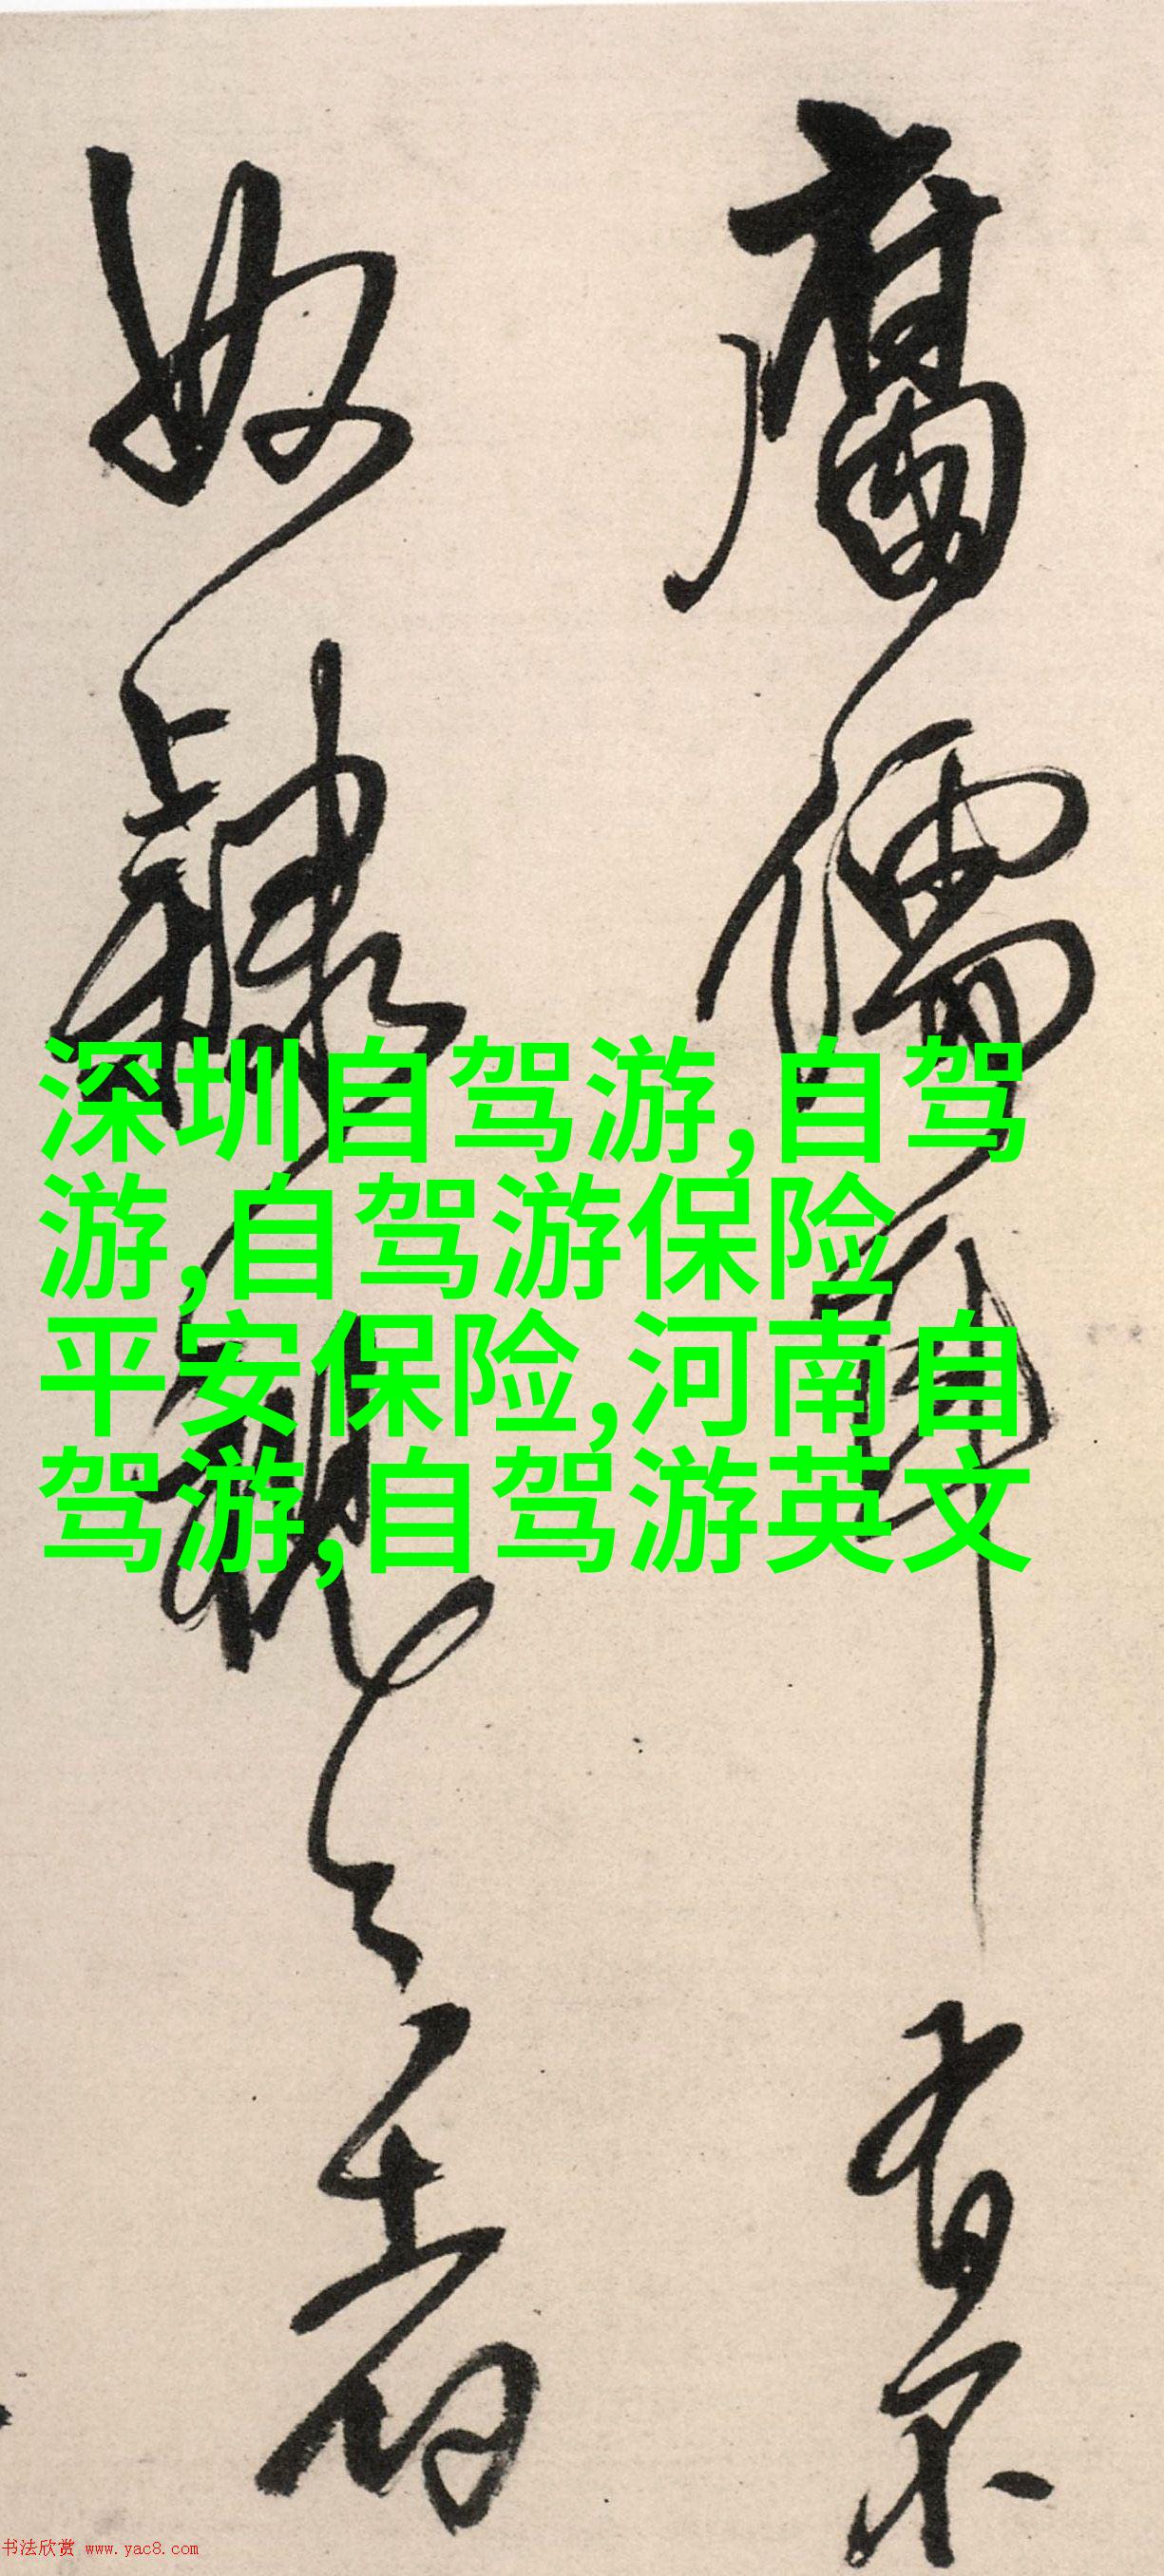 腐儒碎
有不
奴隸視之者
深圳自驾游,自驾
游,自驾游保险
平安保险,河南自
驾游,自驾游英文
书法欣赏 www.yac8.com